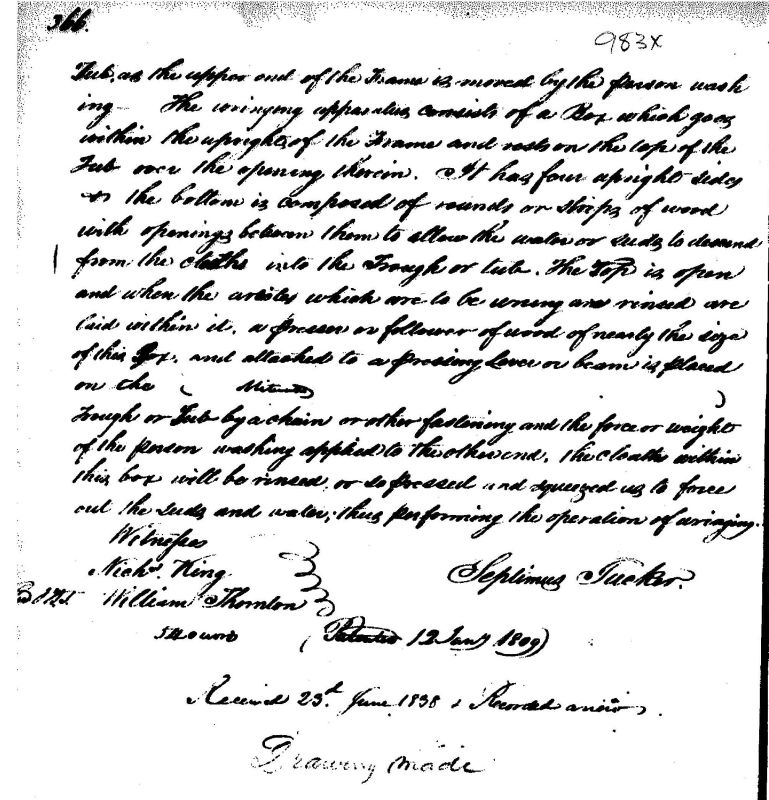 366.
983x
Tub, as the upper end of the Frame is moved by the person wash
ing — The wringing apparatus consists of a Box which goes
within the uprights of the Frame and rests on the top of the
Tub over the opening therein. It has four upright sides
& the bottom is composed of rounds or strips of wood
with openings between them to allow the water or suds to descend
from the cloaths into the Trough or tub. The Top is open
and when the articles which are to be wrung and rinsed are
laid within it, a presser or follower of wood of nearly the size
of this Box, and attached to a pressing Lever or beam is placed
on the
Trough or Tub by a chain or other fastening and the force or weight
of the person washing applied to the other end, the cloaths within
this box will be rinsed, or so pressed and squeezed as to force
out the suds and water; thus performing the operation of wringing.
Witnesses
Nichs. King
Septimus Tucker.
William Thornton
(Patented 12 Jany 1809)
Received 23d. June 1838 & Recorded anew.
Drawing made